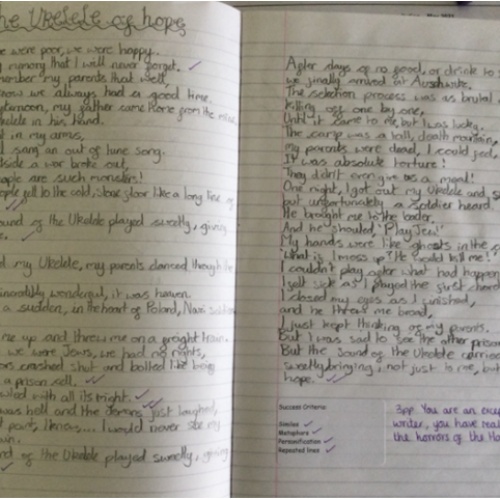 he Ukelele of hope
we were poor, we were happy.
memory that I will never forget.
member my parents that well,
know we always had a good time.
afternoon, my father came home from the
ukelele in his hand.
it in my arms,
I sang an out of tune song.
side a war broke out,
people are such monsters!
people fell to the cold, floor like a long line of
sound of the Ukelele played sweetly, giving
my Ukelele, my parents danced through the
incredibly wonderful, it was heaven.
a sudden, in the heart of Poland, Nazi
me up and threw me on a freight train.
we were Jews, we had no rights,
doors crashed shut and bolted like being
a prison cell.
with all its might.
was hell and the Germans just laughed,
part, I know... I would never see my
again.
sound of the Ukelele played sweetly, giving
After days of no food, or drink to
we finally arrived at Auschwitz.
The selection process was as brutal
killing off one by one,
Until it came to me, but I was lucky.
The camp was a tall, death mountain,
my parents were dead, I could feel,
It was absolute torture!
They didn't even give us a meal!
One night, I got out my Ukelele and
but unfortunately a soldier heard
He brought me to the leader,
And he shouted, "Play Jew!"
My hands were like ghosts in the
"What if I mess up? He would kill me!"
I couldn't play after what had happen
I felt sick as I played the first chord
I closed my eyes as I finished,
and he threw me bread,
I just kept thinking of my parents.
But I was sad to see the other prison
But the sound of the Ukelele carried
sweetly bringing, not just to me, but
hope.
Success Criteria:
Similes
Metaphors
Personification
Repeated lines
3pp. You are an exce
writer, you have real
the horrors of the Ho